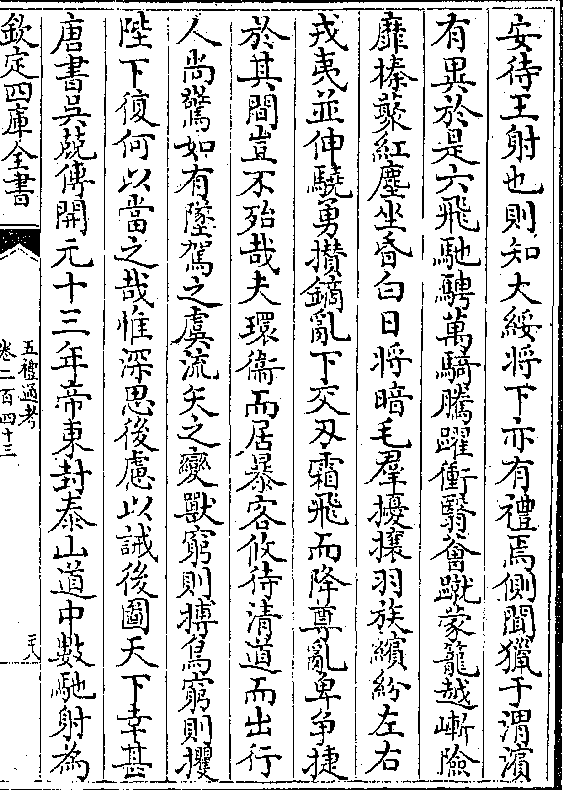 安待王射也則知大綏將下亦有禮焉側聞獵于渭濱
有異於是六飛馳騁萬騎騰躍衝翳薈蹴蒙籠越嶄險
靡榛藂紅塵坐昏白日將暗毛羣擾攘羽族繽紛左右
戎夷並伸驍勇攢鏑亂下交刃霜飛而降尊亂卑争捷
於其間豈不殆哉夫環衞而居暴客攸待清道而出行
人尚驚如有墜駕之虞流矢之變獸窮則搏鳥窮則攫
陛下復何以當之哉惟深思後慮以誡後圖天下幸甚
唐書吳兢傳開元十三年帝東封泰山道中數馳射為
欽定四庫全書
五禮通考
卷二百四十三